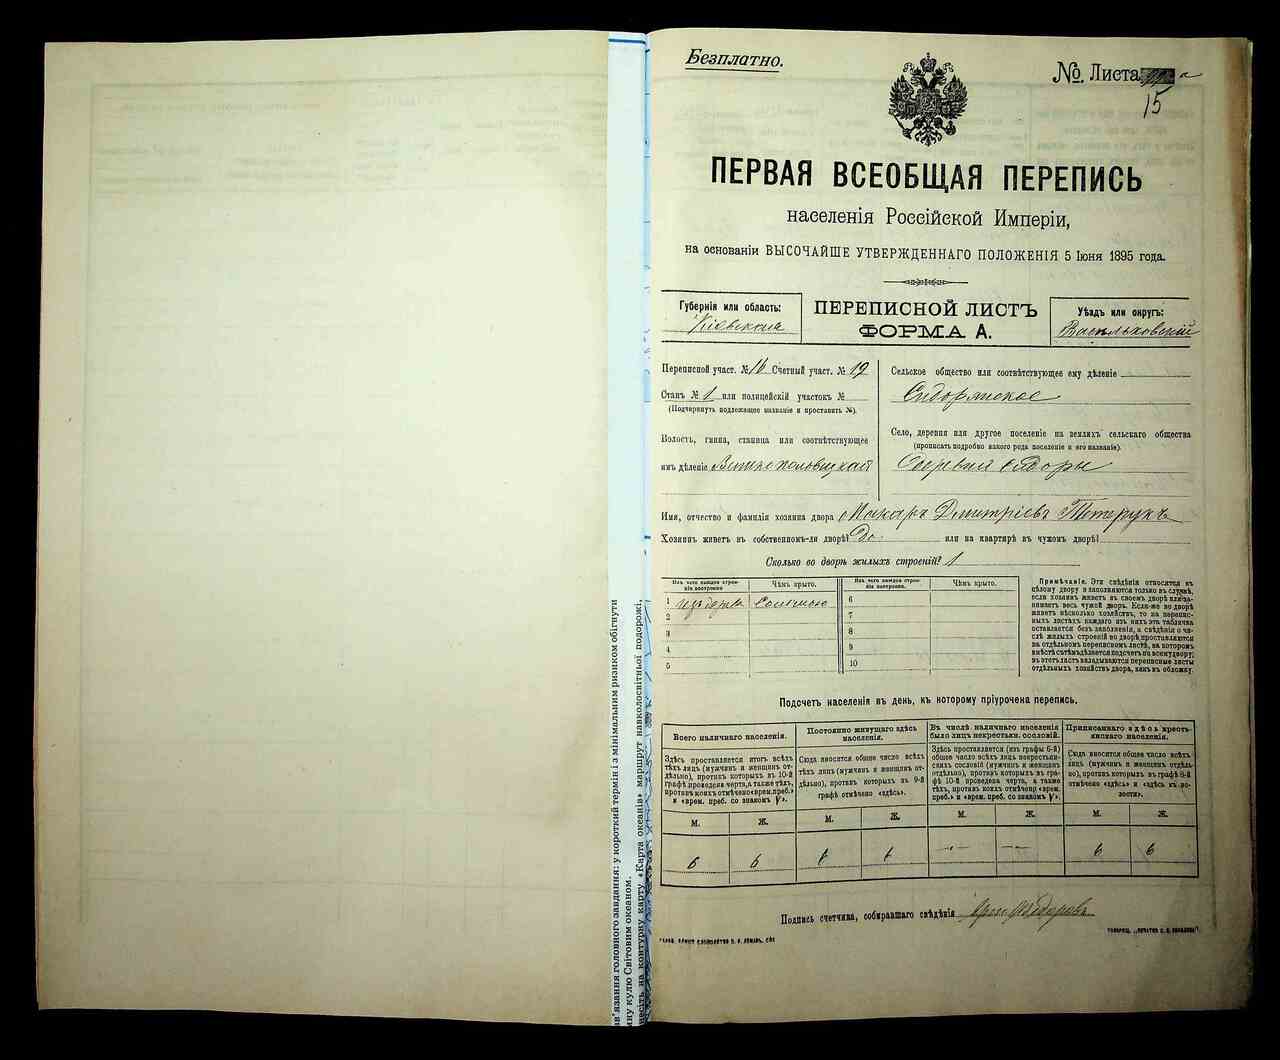 Безплатно.
№. Листа а
15
ПЕРВАЯ ВСЕОБЩАЯ ПЕРЕПИСЬ
населенія Россійской Имперіи,
на основаніи ВЫСОЧАЙШЕ УТВЕРЖДЕННАГО ПОЛОЖЕНІЯ 5 Іюня 1895 года.
Губернія или область:
Кіевская
ПЕРЕПИСНОЙ ЛИСТЪ
ФОРМА А.
Уѣздъ или округъ:
Васильковскій
Переписной участ. № 16 Счетный участ. № 19
Станъ № 1 или полицейскій участокъ №
(Подчеркнуть подлежащее названіе и проставить №).
Волость, гмина, станица или соотвѣтствующее
имъ дѣленіе
Сельское общество или соотвѣтствующее ему дѣленіе
Сидорянское
Село, деревня или другое поселеніе на земляхъ сельскаго общества
(прописать подробно какого рода поселеніе и его названіе).
Деревня Сидоры
Имя, отчество и фамилія хозяина двора Макаръ Дмитріевъ Тетерукъ
Хозяинъ живетъ въ собственномъ-ли дворѣ? Да или на квартирѣ въ чужомъ дворѣ?
Сколько во дворѣ жилыхъ строеній? 1
Изъ чего каждое строеніе построено. Чѣмъ крыто. Изъ чего каждое строеніе построено. Чѣмъ крыто.
1 изъ дерева Соломою 6
2 7
3 8
4 9
5 10
Примѣчаніе. Эти свѣдѣнія относятся къ
цѣлому двору и заполняются только въ случаѣ,
если хозяинъ живетъ въ своемъ дворѣ или занимаетъ
весь чужой дворъ. Если-же во дворѣ
живетъ нѣсколько хозяйствъ, то на переписныхъ
листахъ каждаго изъ нихъ эта табличка
оставляется безъ заполненія, а свѣдѣнія о числѣ
жилыхъ строеній во дворѣ, проставляются
на отдѣльномъ переписномъ листѣ, на которомъ
вмѣстѣ съ тѣмъ дѣлается подсчетъ по всему двору;
въ этотъ листъ вкладываются переписные листы
отдѣльныхъ хозяйствъ двора, какъ въ обложку.
Подсчетъ населенія въ день, къ которому пріурочена перепись.
Всего наличнаго населенія.
Здѣсь проставляется итогъ всѣхъ
тѣхъ лицъ (мужчинъ и женщинъ отдѣльно),
противъ которыхъ въ 10-й
графѣ проведена черта, а также тѣхъ,
противъ коихъ отмѣчено «врем. преб.»
и «врем. преб. со знакомъ V».
Постоянно живущаго здѣсь
населенія.
Сюда вносится общее число всѣхъ
тѣхъ лицъ (мужчинъ и женщинъ отдѣльно),
противъ которыхъ въ 9-й
графѣ отмѣчено «здѣсь».
Въ числѣ наличнаго населенія
было лицъ некрестьян. сословій.
Здѣсь проставляется (изъ графы 6-й)
общее число всѣхъ лицъ некрестьянскихъ
сословій (мужчинъ и женщинъ
отдѣльно), противъ которыхъ въ графѣ
10-й проведена черта, а также
тѣхъ, противъ коихъ отмѣчено «врем.
преб.» и «врем. преб. со знакомъ V».
Приписаннаго здѣсь крестьянскаго
населенія.
Сюда вносится общее число всѣхъ
тѣхъ лицъ (мужчинъ и женщинъ отдѣльно),
противъ коихъ въ графѣ 8-й
отмѣчено «здѣсь» и «здѣсь къ волости».
М. Ж. М. Ж. М. Ж. М. Ж.
6 6 6 6 — — 6 6
Подпись счетчика, собиравшаго свѣдѣнія Федоровъ
в'язання головного завдання: у короткий термін і з мінімальним ризиком обігнути
кулю Світовим океаном.
на контурну карту «Карта океанів» маршрут навколосвітньої подорожі,